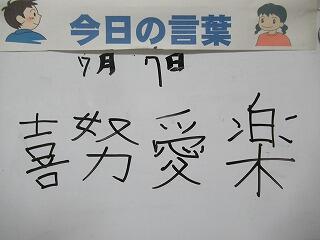 今日の言葉
7月 7日
喜努愛楽